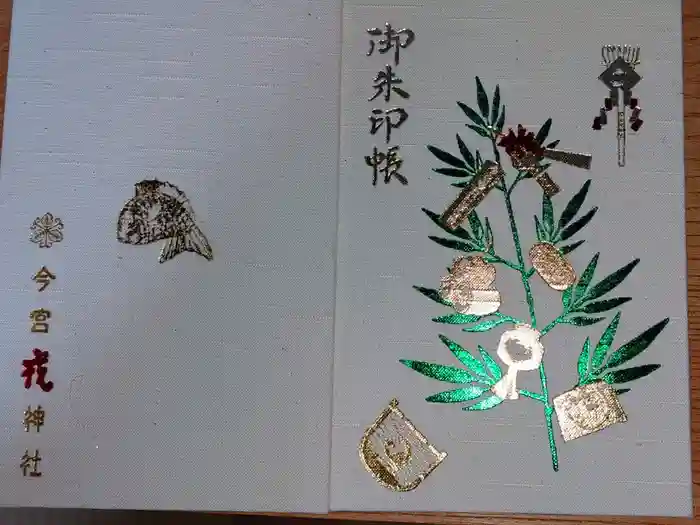 御朱印帳
今宮戎神社